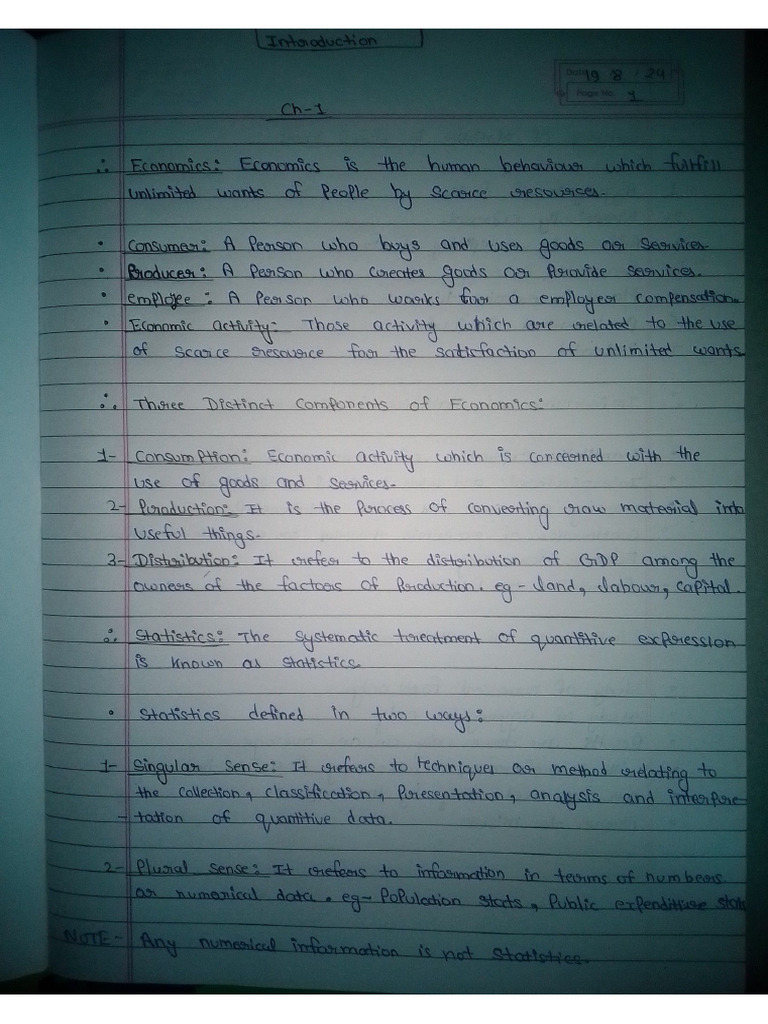 Introduction
Date 19 / 8 / 24
Page No. 1
Ch-1
∴ Economics: Economics is the human behaviour which fulfill
unlimited wants of People by scarce resources.
• Consumer: A Person who buys and uses goods or Services.
• Producer: A Person who creates goods or Provide services.
• employee: A Person who works for a employer compensation.
• Economic activity: Those activity which are related to the use
of scarce resource for the satisfaction of unlimited wants
∴ Three Distinct Components of Economics:
1- Consumption: Economic activity which is concerned with the
use of goods and services.
2- Production: It is the Process of converting raw material into
useful things.
3- Distribution: It refer to the distribution of GDP among the
owners of the factors of Production. eg - land, labour, capital.
∴ Statistics: The systematic treatment of quantitive expression
is known as statistics.
• Statistics defined in two ways:
1- Singular sense: It refers to techniques or method relating to
the collection, classification, Presentation, analysis and interpre
-tation of quantitive data.
2- Plural sense: It refers to information in terms of numbers
or numerical data. eg- Population stats, Public expenditure stats
NOTE- Any numerical information is not statistics.